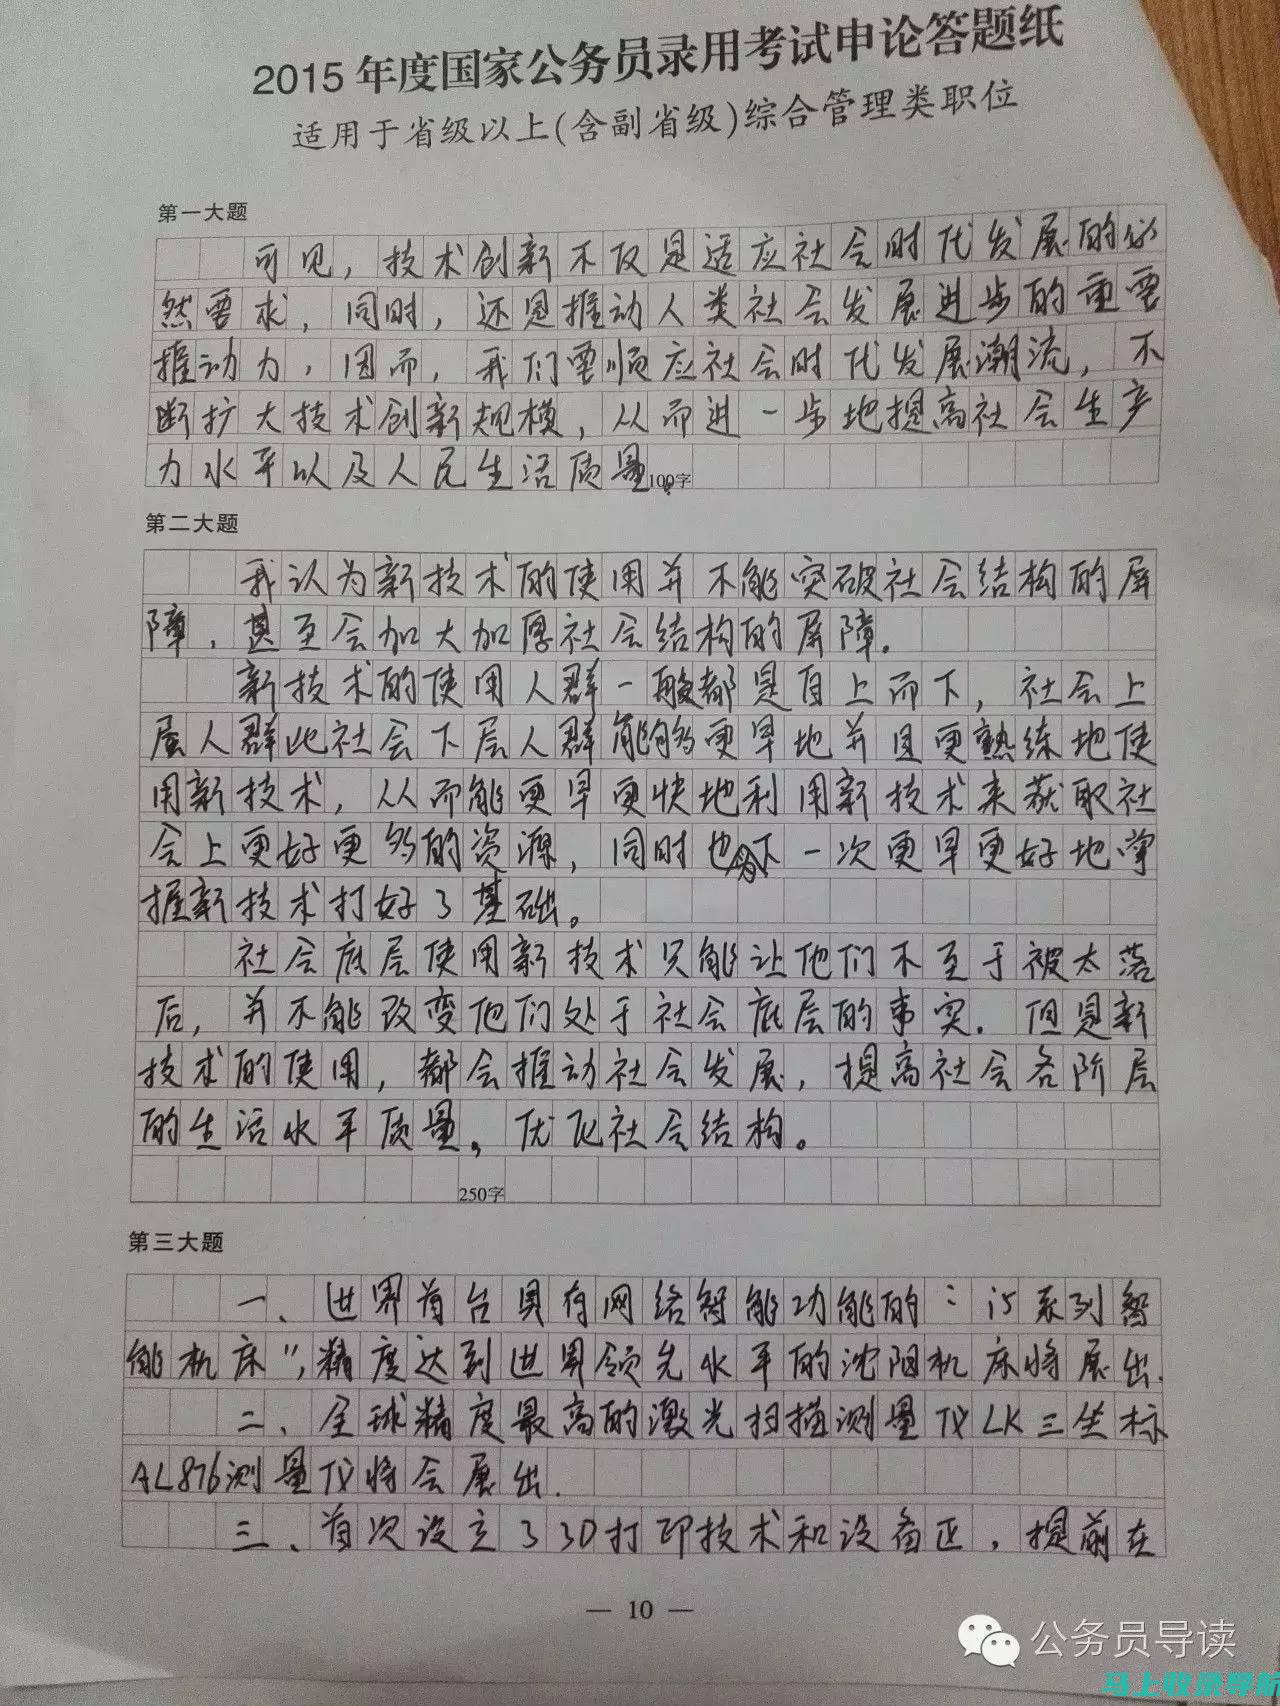 2015年度国家公务员录用考试申论答题纸
适用于省级以上(含副省级)综合管理类职位
第一大题
可见，技术创新不仅是适应社会时代发展的必
然要求，同时，还是推动人类社会发展进步的重要
推动力，因而，我们要顺应社会时代发展潮流，不
断扩大技术创新规模，从而进一步地提高社会生产
力水平以及人民生活质量。
100字
第二大题
我认为新技术的使用并不能突破社会结构的屏
障，甚至会加大加厚社会结构的屏障。
新技术的使用人群一般都是自上而下，社会上
层人群比社会下层人群能够更早地并且更熟练地使
用新技术，从而能更早更快地利用新技术来获取社
会上更好更多的资源，同时也为下一次更早更好地掌
握新技术打好了基础。
社会底层使用新技术只能让他们不至于被太落
后，并不能改变他们处于社会底层的事实。但是新
技术的使用，都会推动社会发展，提高社会各阶层
的生活水平质量，优化社会结构。
250字
第三大题
一、世界首台具有网络智能功能的“i5系列智
能机床”，精度达到世界领先水平的沈阳机床将展出.
二、全球精度最高的激光扫描测量仪LK三坐标
AL876测量仪将会展出.
三、首次设立了3D打印技术和设备区，提前在
— 10 —
公务员导读
马上收录导航